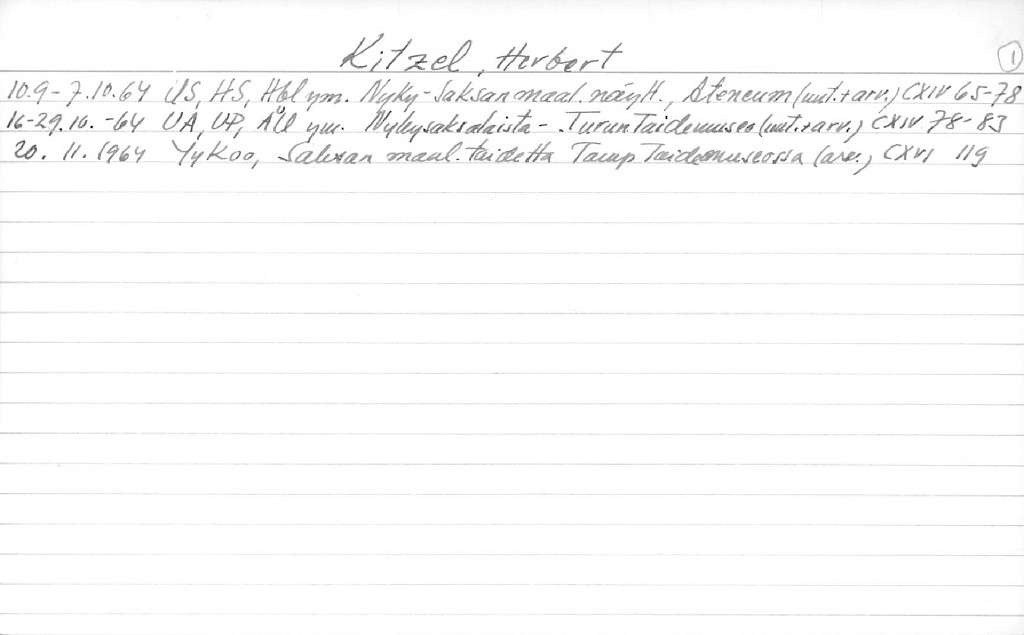 Kitzel, Herbert
1
10.9-7.10.64 US, HS, Hbl ym. Nyky-Saksan maal. näytt., Ateneum (uut.+arv.) CXIV 65-78
16-29.10.-64 UA, UP, ÅU ym. Nykysaksalaista - Turun Taidemuseo (uut.+arv.) CXIV 78-83
20. 11. 1964 YyKoo, Saksan maal. taidetta Tamp Taidemuseossa (arv.) CXVI 119